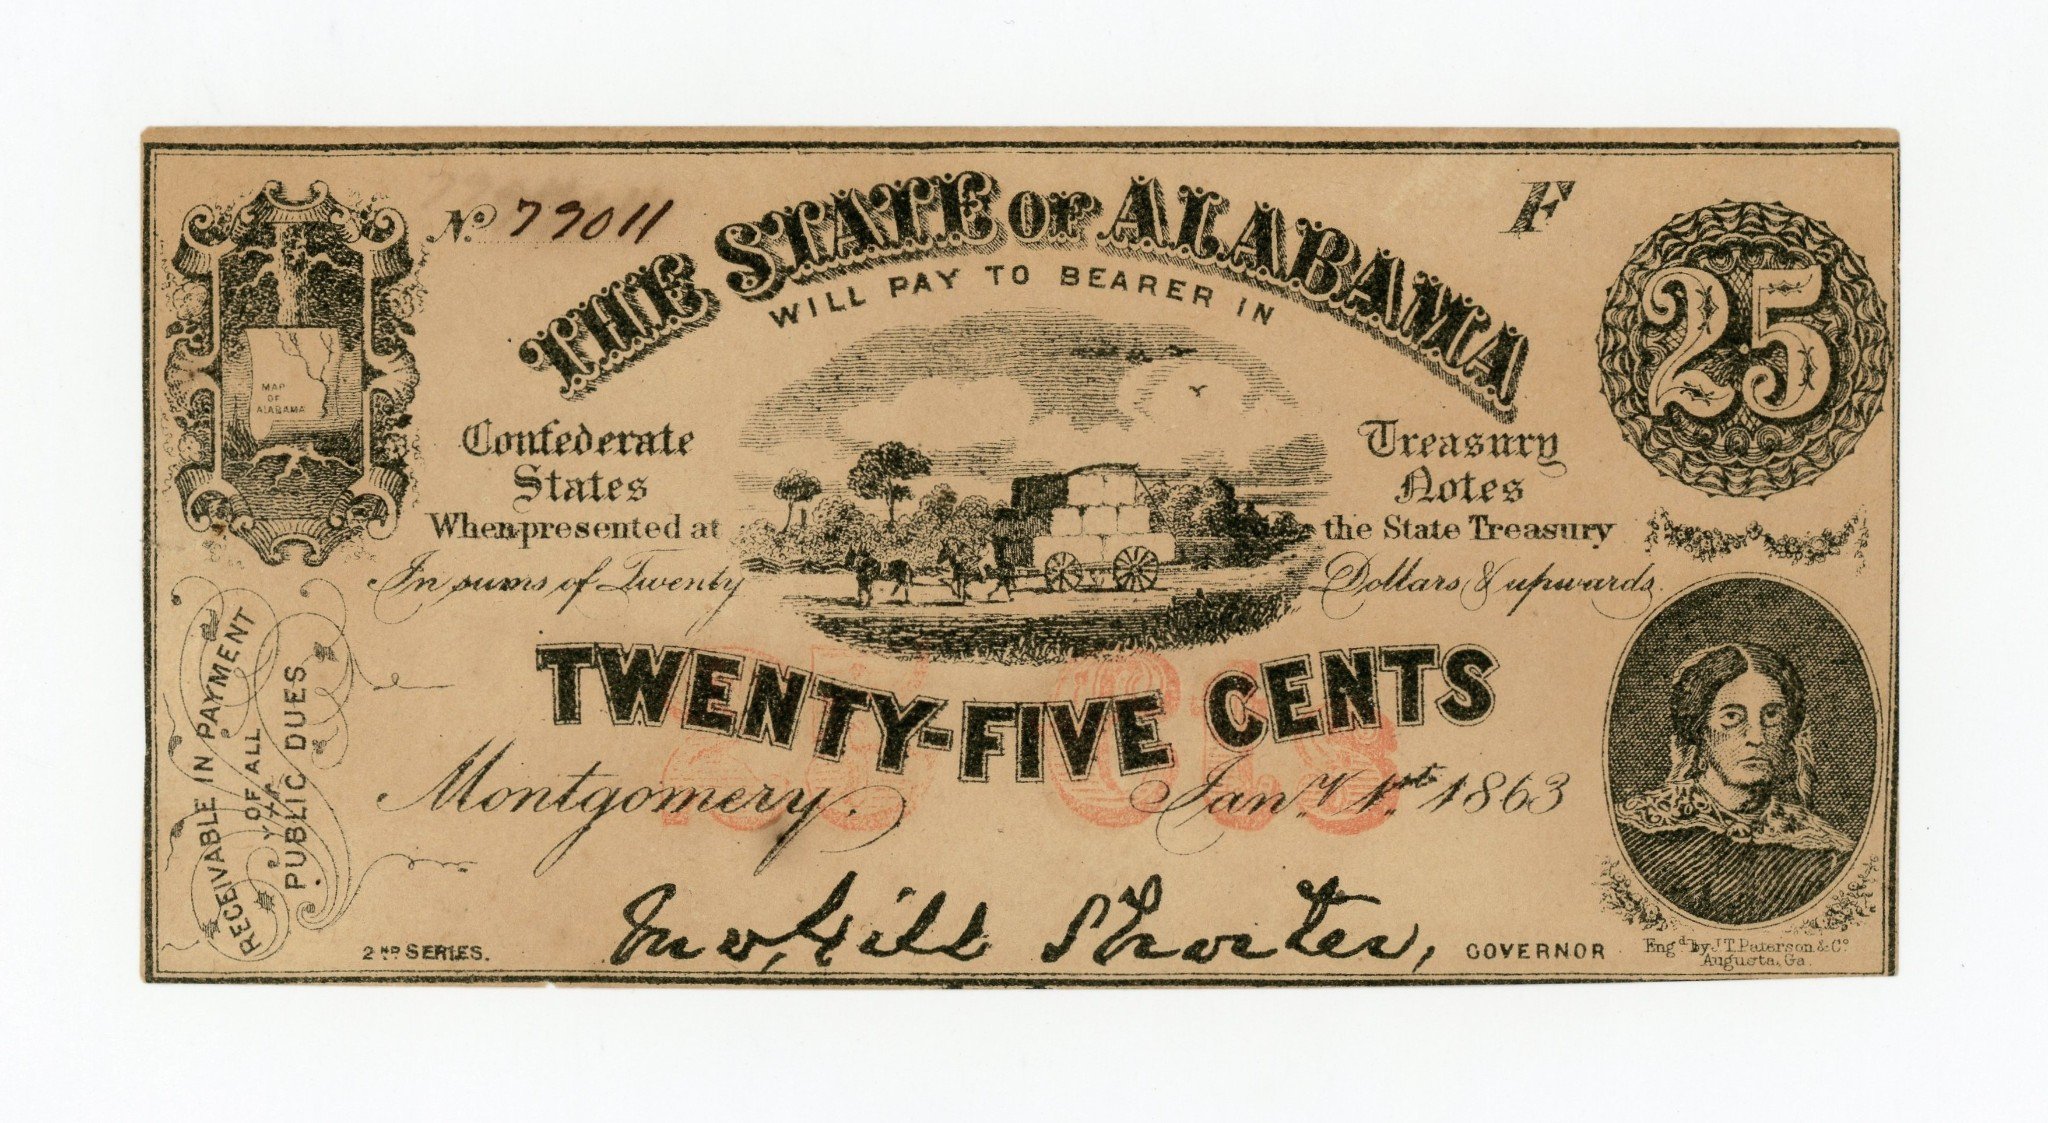 No. 79011
F
THE STATE OF ALABAMA
WILL PAY TO BEARER IN
25
MAP
OF
ALABAMA
Confederate
States
Treasury
Notes
When presented at
the State Treasury
In sums of Twenty
Dollars & upwards.
TWENTY-FIVE CENTS
25 CTS
Montgomery. Jany. 1st. 1863
RECEIVABLE IN PAYMENT
OF ALL
PUBLIC DUES
2ND SERIES.
Jno, Gill Shorter, GOVERNOR
Engd by J.T. Paterson & Co.
Augusta, Ga.